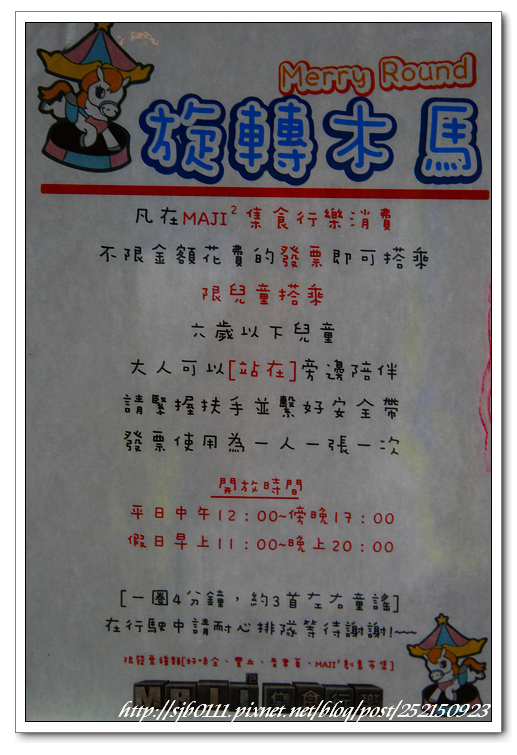 Merry Round
旋轉木馬
凡在MAJI²集食行樂消費
不限金額花費的發票即可搭乘
限兒童搭乘
六歲以下兒童
大人可以[站在]旁邊陪伴
請緊握扶手並繫好安全帶
發票使用為一人一張一次
開放時間
平日中午12：00~傍晚17：00
假日早上11：00~晚上20：00
[一圈4分鐘，約3首左右童謠]
在行駛中請耐心排隊等待謝謝!~~
MAJI²創意市集]
MAJI² 集食行樂
http://sjb0111.pixnet.net/blog/post/252150923